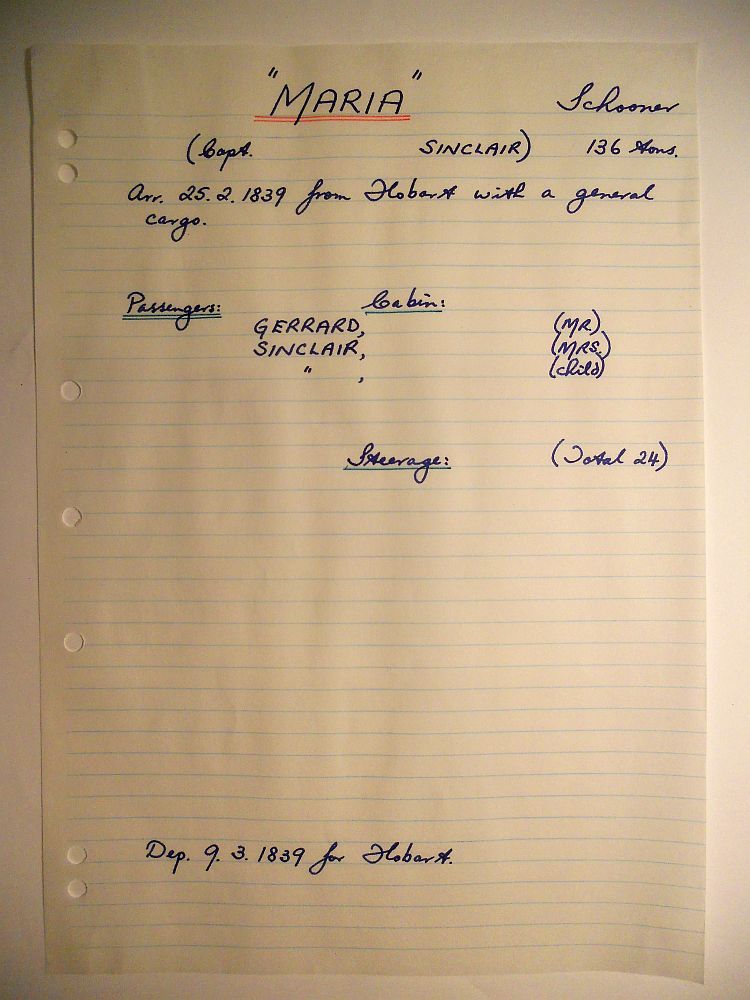 "MARIA" Schooner
(Capt. SINCLAIR) 136 tons.
Arr. 25. 2. 1839 from Hobart with a general
cargo.
Passengers: Cabin:
GERRARD, (MR.)
SINCLAIR, (MRS.)
" , (child)
Steerage: (Total 24)
Dep. 9. 3. 1839 for Hobart.